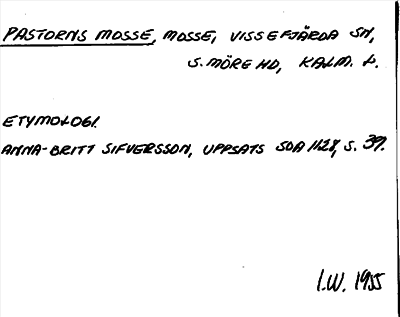 PASTORNS MOSSE, MOSSE, VISSEFJÄRDA SN,
S. MÖRE HD, KALM. L.
ETYMOLOGI.
ANNA-BRITT SIFVERSSON, UPPSATS SOA 1128, S. 39.
I.W. 1955